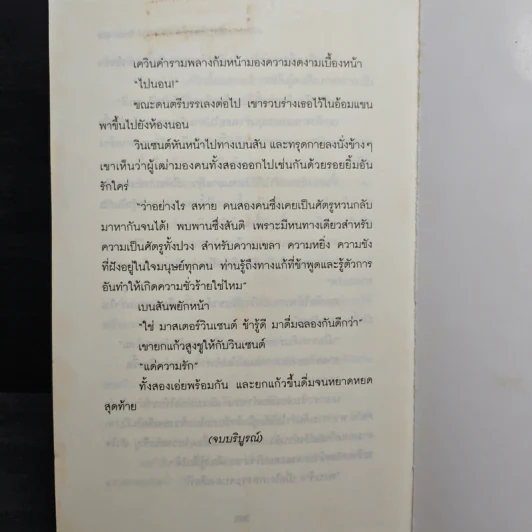 เควินคำรามพลางก้มหน้ามองความงดงามเบื้องหน้า
“ไปนอน!”
ขณะดนตรีบรรเลงต่อไป เขารวบร่างเธอไว้ในอ้อมแขน
พาขึ้นไปยังห้องนอน
วินเซนต์หันหน้าไปทางเบนสัน และทรุดกายลงนั่งข้างๆ
เขาเห็นว่าผู้เฒ่ามองคนทั้งสองออกไปเช่นกันด้วยรอยยิ้มอัน
รักใคร่
“ว่าอย่างไร สหาย คนสองคนซึ่งเคยเป็นศัตรูหวนกลับ
มาหากันจนได้! พบพานซึ่งสันติ เพราะมีหนทางเดียวสำหรับ
ความเป็นศัตรูทั้งปวง สำหรับความเขลา ความหยิ่ง ความชัง
ที่ฝังอยู่ในใจมนุษย์ทุกคน ท่านรู้ถึงทางแก้ที่ข้าพูดและรู้ตัวการ
อันทำให้เกิดความชั่วร้ายใช่ไหม”
เบนสันพยักหน้า
“ใช่ มาสเตอร์วินเซนต์ ข้ารู้ดี มาดื่มฉลองกันดีกว่า”
เขายกแก้วสูงชูให้กับวินเซนต์
“แด่ความรัก”
ทั้งสองเอ่ยพร้อมกัน และยกแก้วขึ้นดื่มจนหยาดหยด
สุดท้าย
(จบบริบูรณ์)